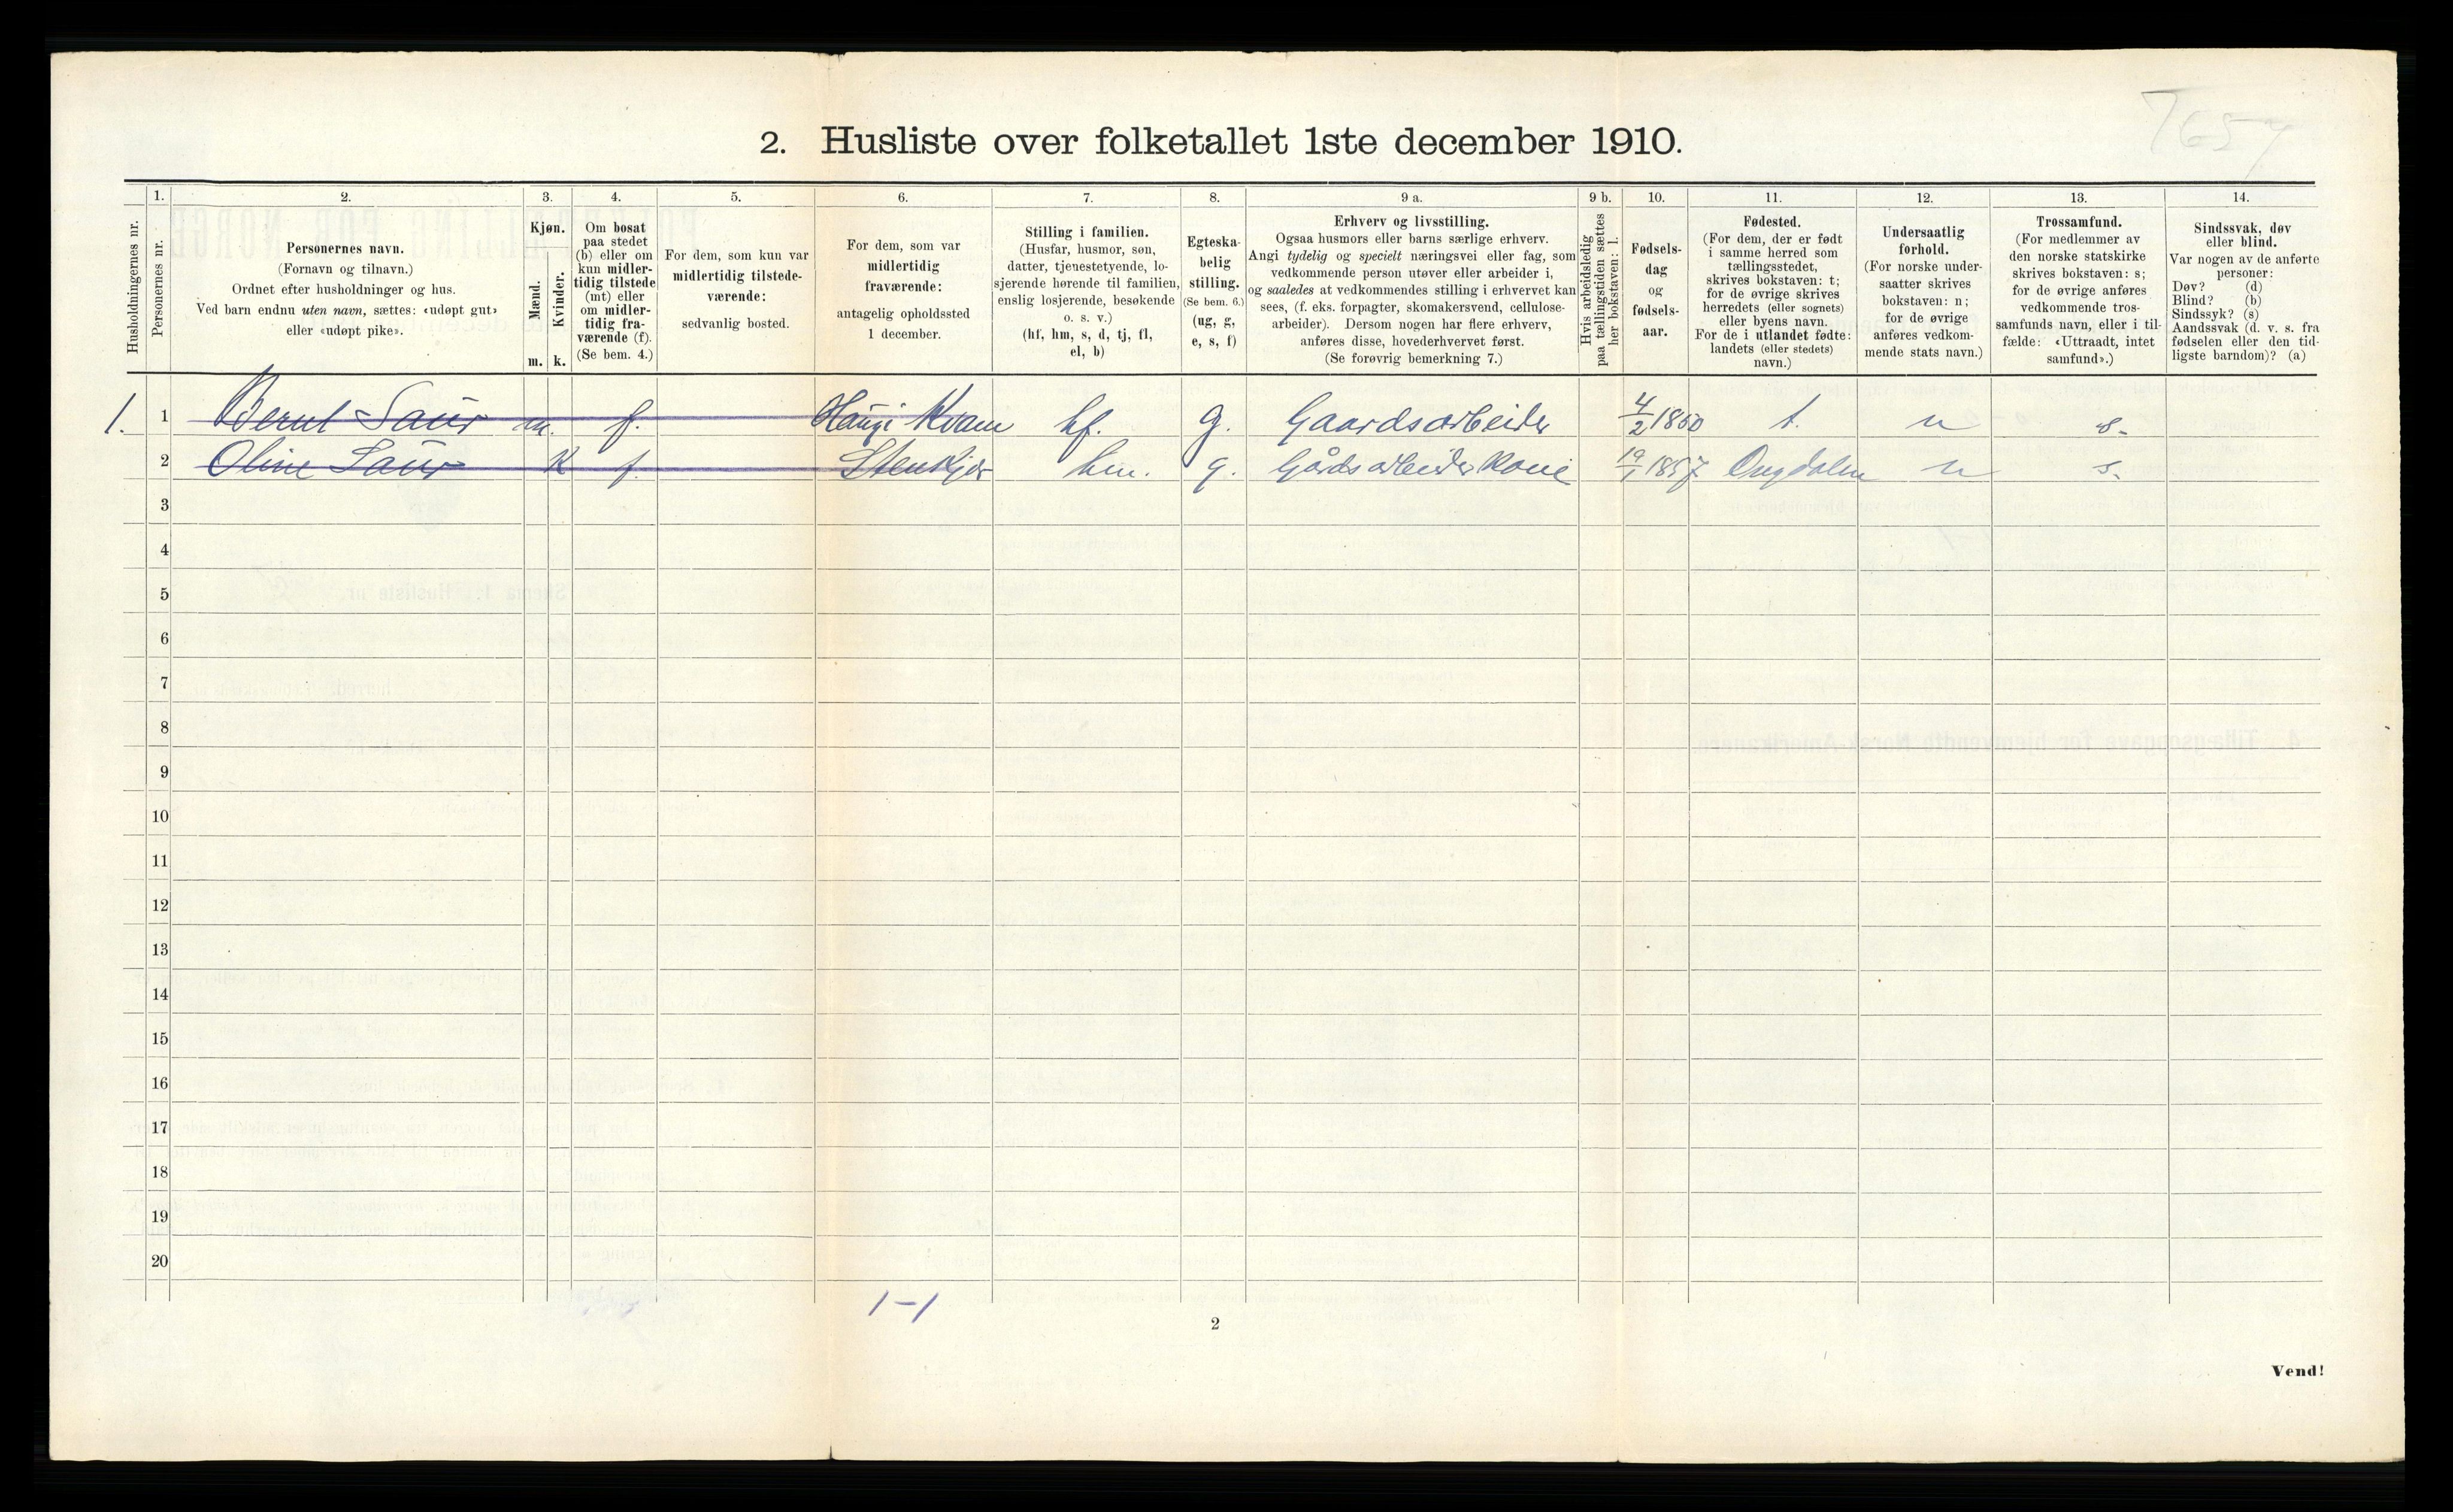 7657
2. Husliste over folketallet 1ste december 1910.
Husholdningernes nr.
1.
Personernes nr.
2.
Personernes navn.
(Fornavn og tilnavn.)
Ordnet efter husholdninger og hus.
Ved barn endnu uten navn, sættes: «udøpt gut»
eller «udøpt pike».
3.
Kjøn.
Mænd.
Kvinder.
m. k.
4.
Om bosat
paa stedet
(b) eller om
kun midler-
tidig tilstede
(mt) eller
om midler-
tidig fra-
værende (f).
(Se bem. 4.)
5.
For dem, som kun var
midlertidig tilstede-
værende:
sedvanlig bosted.
6.
For dem, som var
midlertidig
fraværende:
antagelig opholdssted
1 december.
7.
Stilling i familien.
(Husfar, husmor, søn,
datter, tjenestetyende, lo-
sjerende hørende til familien,
enslig losjerende, besøkende
o. s. v.)
(hf, hm, s, d, tj, fl,
el, b)
8.
Egteska-
belig
stilling.
(Se bem. 6.)
(ug, g,
e, s, f)
9 a.
Erhverv og livsstilling.
Ogsaa husmors eller barns særlige erhverv.
Angi tydelig og specielt næringsvei eller fag, som
vedkommende person utøver eller arbeider i,
og saaledes at vedkommendes stilling i erhvervet kan
sees, (f. eks. forpagter, skomakersvend, cellulose-
arbeider). Dersom nogen har flere erhverv,
anføres disse, hovederhvervet først.
(Se forøvrig bemerkning 7.)
9 b.
Hvis arbeidsledig
paa tællingstiden sættes
her bokstaven: l.
10.
Fødsels-
dag
og
fødsels-
aar.
11.
Fødested.
(For dem, der er født
i samme herred som
tællingsstedet,
skrives bokstaven: t;
for de øvrige skrives
herredets (eller sognets)
eller byens navn.
For de i utlandet fødte:
landets (eller stedets)
navn.)
12.
Undersaatlig
forhold.
(For norske under-
saatter skrives
bokstaven: n;
for de øvrige
anføres vedkom-
mende stats navn.)
13.
Trossamfund.
(For medlemmer av
den norske statskirke
skrives bokstaven: s;
for de øvrige anføres
vedkommende tros-
samfunds navn, eller i til-
fælde: «Uttraadt, intet
samfund».)
14.
Sindssvak, døv
eller blind.
Var nogen av de anførte
personer:
Døv? (d)
Blind? (b)
Sindssyk? (s)
Aandssvak (d. v. s. fra
fødselen eller den tid-
ligste barndom)? (a)
1. 1 Bernt Saur m. f. Haugi Kvam hf. g. Gaardsarbeider 4/2 1860 t. n s.
2 Oline Saur k f. Stenkjer hm. g. Gårdsarbeider Kone 19/1 1857 Ongdalen n s.
3
4
5
6
7
8
9
10
11
12
13
14
15
16
17
18
19
20
1-1
2
Vend!